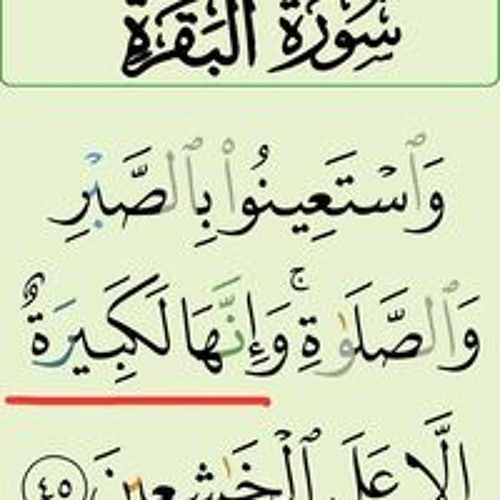 سُورَةُ الْبَقَرَةِ
وَٱسْتَعِينُوا۟ بِٱلصَّبْرِ
وَٱلصَّلَوٰةِ ۚ وَإِنَّهَا لَكَبِيرَةٌ
إِلَّا عَلَى ٱلْخَـٰشِعِينَ ٤٥